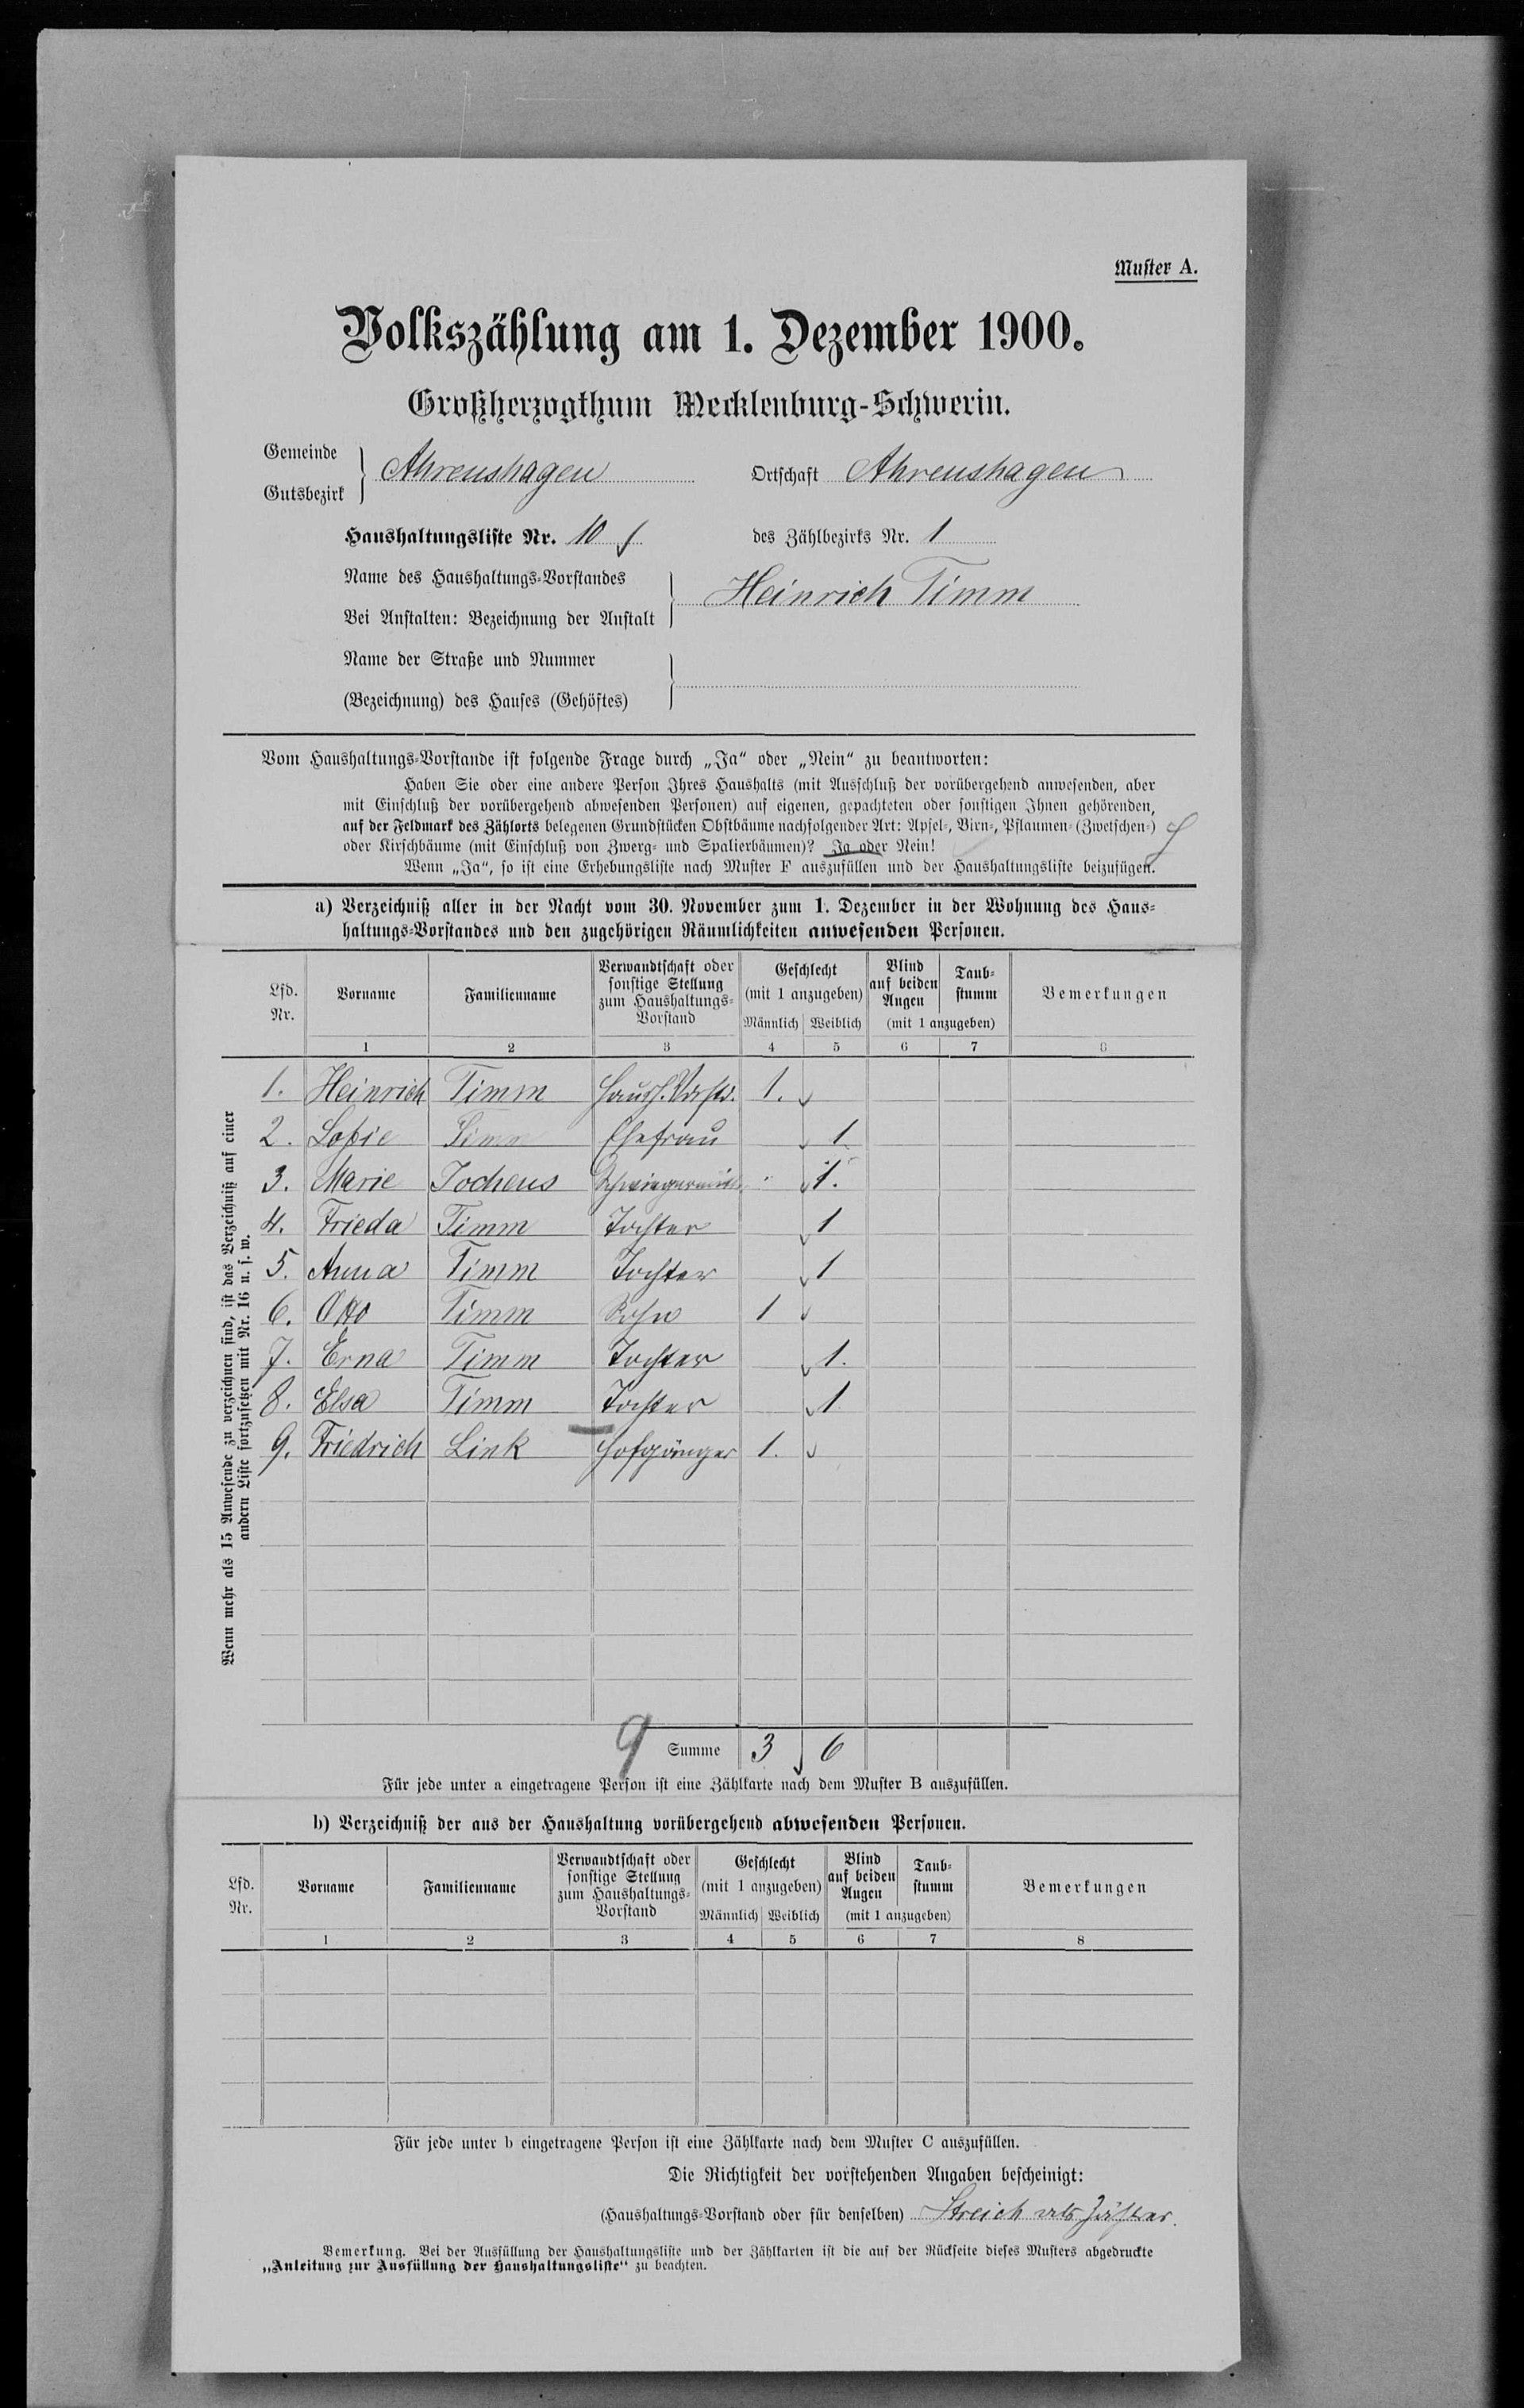 Muster A.
Volkszählung am 1. Dezember 1900.
Großherzogthum Mecklenburg-Schwerin.
Gemeinde
Gutsbezirk
Ahrenshagen
Ortschaft Ahrenshagen
Haushaltungsliste Nr. 10
des Zählbezirks Nr. 1
Name des Haushaltungs-Vorstandes
Bei Anstalten: Bezeichnung der Anstalt
Heinrich Timm
Name der Straße und Nummer
(Bezeichnung) des Hauses (Gehöftes)
Vom Haushaltungs-Vorstande ist folgende Frage durch „Ja“ oder „Nein“ zu beantworten:
Haben Sie oder eine andere Person Ihres Haushalts (mit Ausschluß der vorübergehend anwesenden, aber
mit Einschluß der vorübergehend abwesenden Personen) auf eigenen, gepachteten oder sonstigen Ihnen gehörenden,
auf der Feldmark des Zählorts belegenen Grundstücken Obstbäume nachfolgender Art: Apfel-, Birn-, Pflaumen- (Zwetschen-)
oder Kirschbäume (mit Einschluß von Zwerg- und Spalierbäumen)? Ja oder Nein!
Wenn „Ja“, so ist eine Erhebungsliste nach Muster F auszufüllen und der Haushaltungsliste beizufügen.
a) Verzeichniß aller in der Nacht vom 30. November zum 1. Dezember in der Wohnung des Haus-
haltungs-Vorstandes und den zugehörigen Räumlichkeiten anwesenden Personen.
Lfd. Nr.
Vorname
Familienname
Verwandtschaft oder sonstige Stellung zum Haushaltungs-Vorstand
Geschlecht (mit 1 anzugeben)
Männlich Weiblich
Blind auf beiden Augen
Taub-stumm
(mit 1 anzugeben)
Bemerkungen
1 2 3 4 5 6 7 8
1. Heinrich Timm Haush. Vorst. 1.
2. Sofie Timm Ehefrau 1
3. Marie Jochens 1.
4. Frieda Timm Tochter 1
5. Anna Timm Tochter 1
6. Otto Timm Sohn 1
7. Erna Timm Tochter 1.
8. Elsa Timm Tochter 1
9. Friedrich Link Hofgänger 1.
Wenn mehr als 15 Anwesende zu verzeichnen sind, ist das Verzeichniß auf einer
andern Liste fortzusetzen mit Nr. 16 u. s. w.
9 Summe 3 6
Für jede unter a eingetragene Person ist eine Zählkarte nach dem Muster B auszufüllen.
b) Verzeichniß der aus der Haushaltung vorübergehend abwesenden Personen.
Lfd. Nr.
Vorname
Familienname
Verwandtschaft oder sonstige Stellung zum Haushaltungs-Vorstand
Geschlecht (mit 1 anzugeben)
Männlich Weiblich
Blind auf beiden Augen
Taub-stumm
(mit 1 anzugeben)
Bemerkungen
1 2 3 4 5 6 7 8
Für jede unter b eingetragene Person ist eine Zählkarte nach dem Muster C auszufüllen.
Die Richtigkeit der vorstehenden Angaben bescheinigt:
(Haushaltungs-Vorstand oder für denselben) Streich als Zähler.
Bemerkung. Bei der Ausfüllung der Haushaltungsliste und der Zählkarten ist die auf der Rückseite dieses Musters abgedruckte
„Anleitung zur Ausfüllung der Haushaltungsliste“ zu beachten.